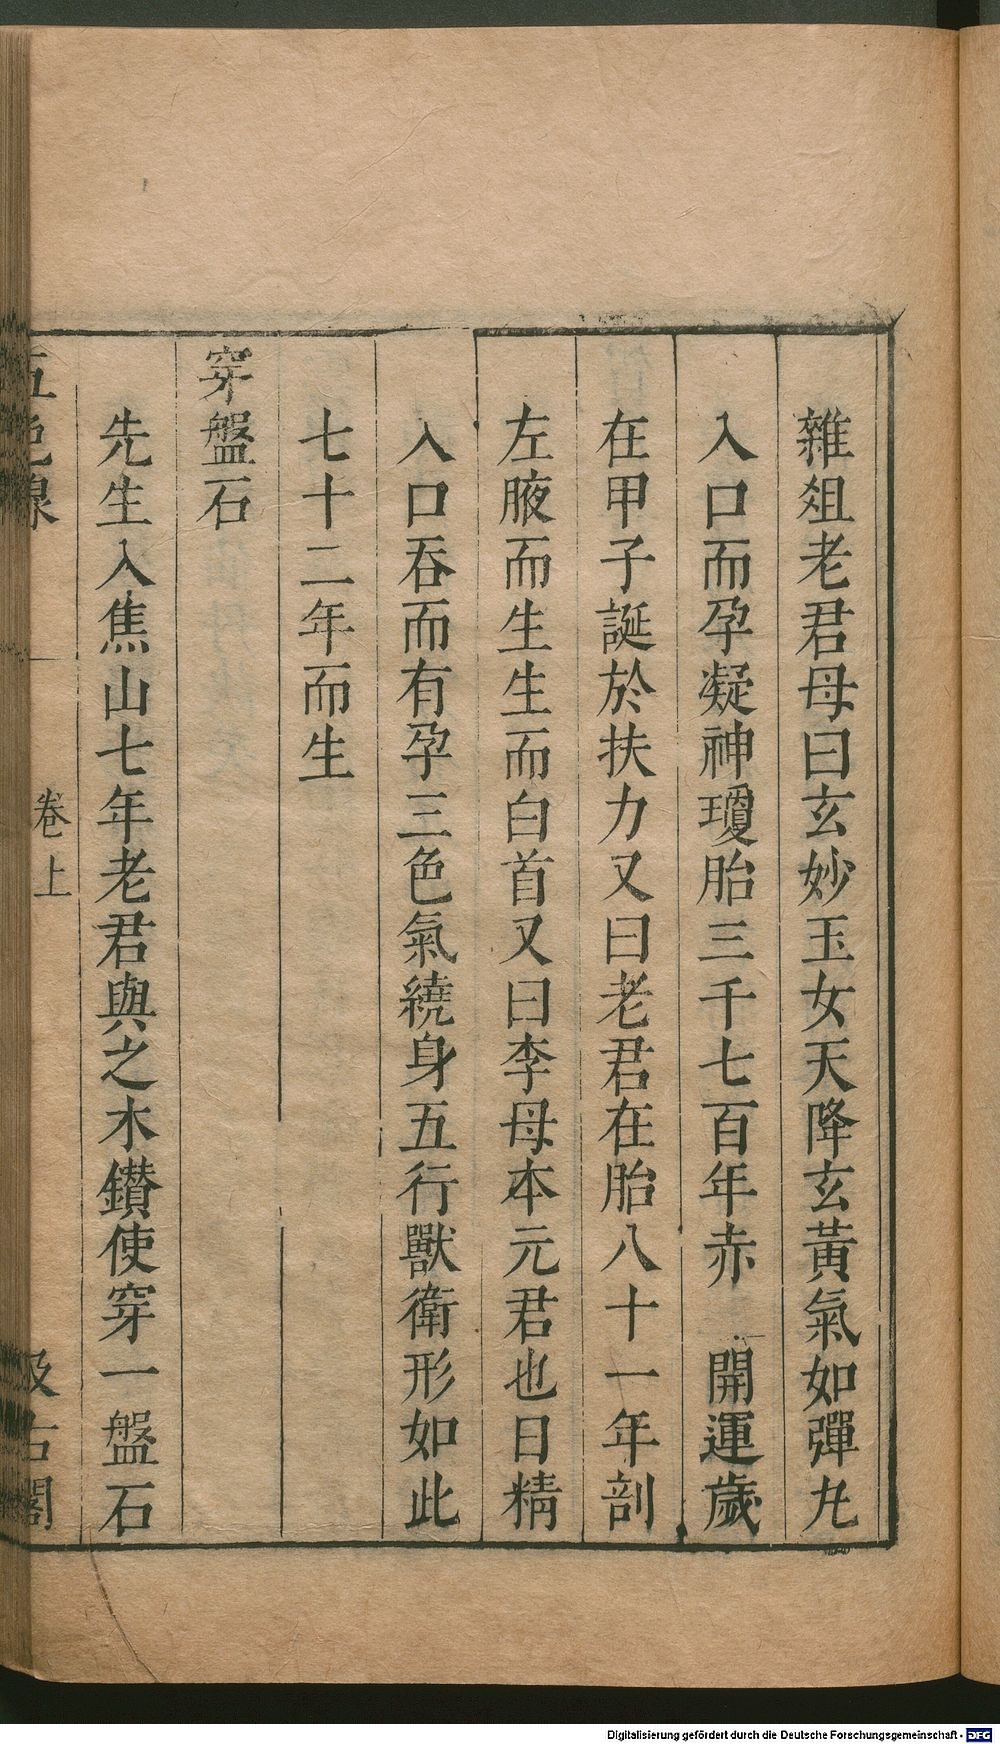 雜俎老君母曰玄妙玉女天降玄黃氣如彈丸
入口而孕凝神瓊胎三千七百年赤　開運歲
在甲子誕於扶力又曰老君在胎八十一年剖
左腋而生生而白首又曰李母本元君也日精
入口吞而有孕三色氣繞身五行獸衛形如此
七十二年而生
穿盤石
先生入焦山七年老君與之木鑽使穿一盤石
五色線　卷上　汲古閣
Digitalisierung gefördert durch die Deutsche Forschungsgemeinschaft - DFG